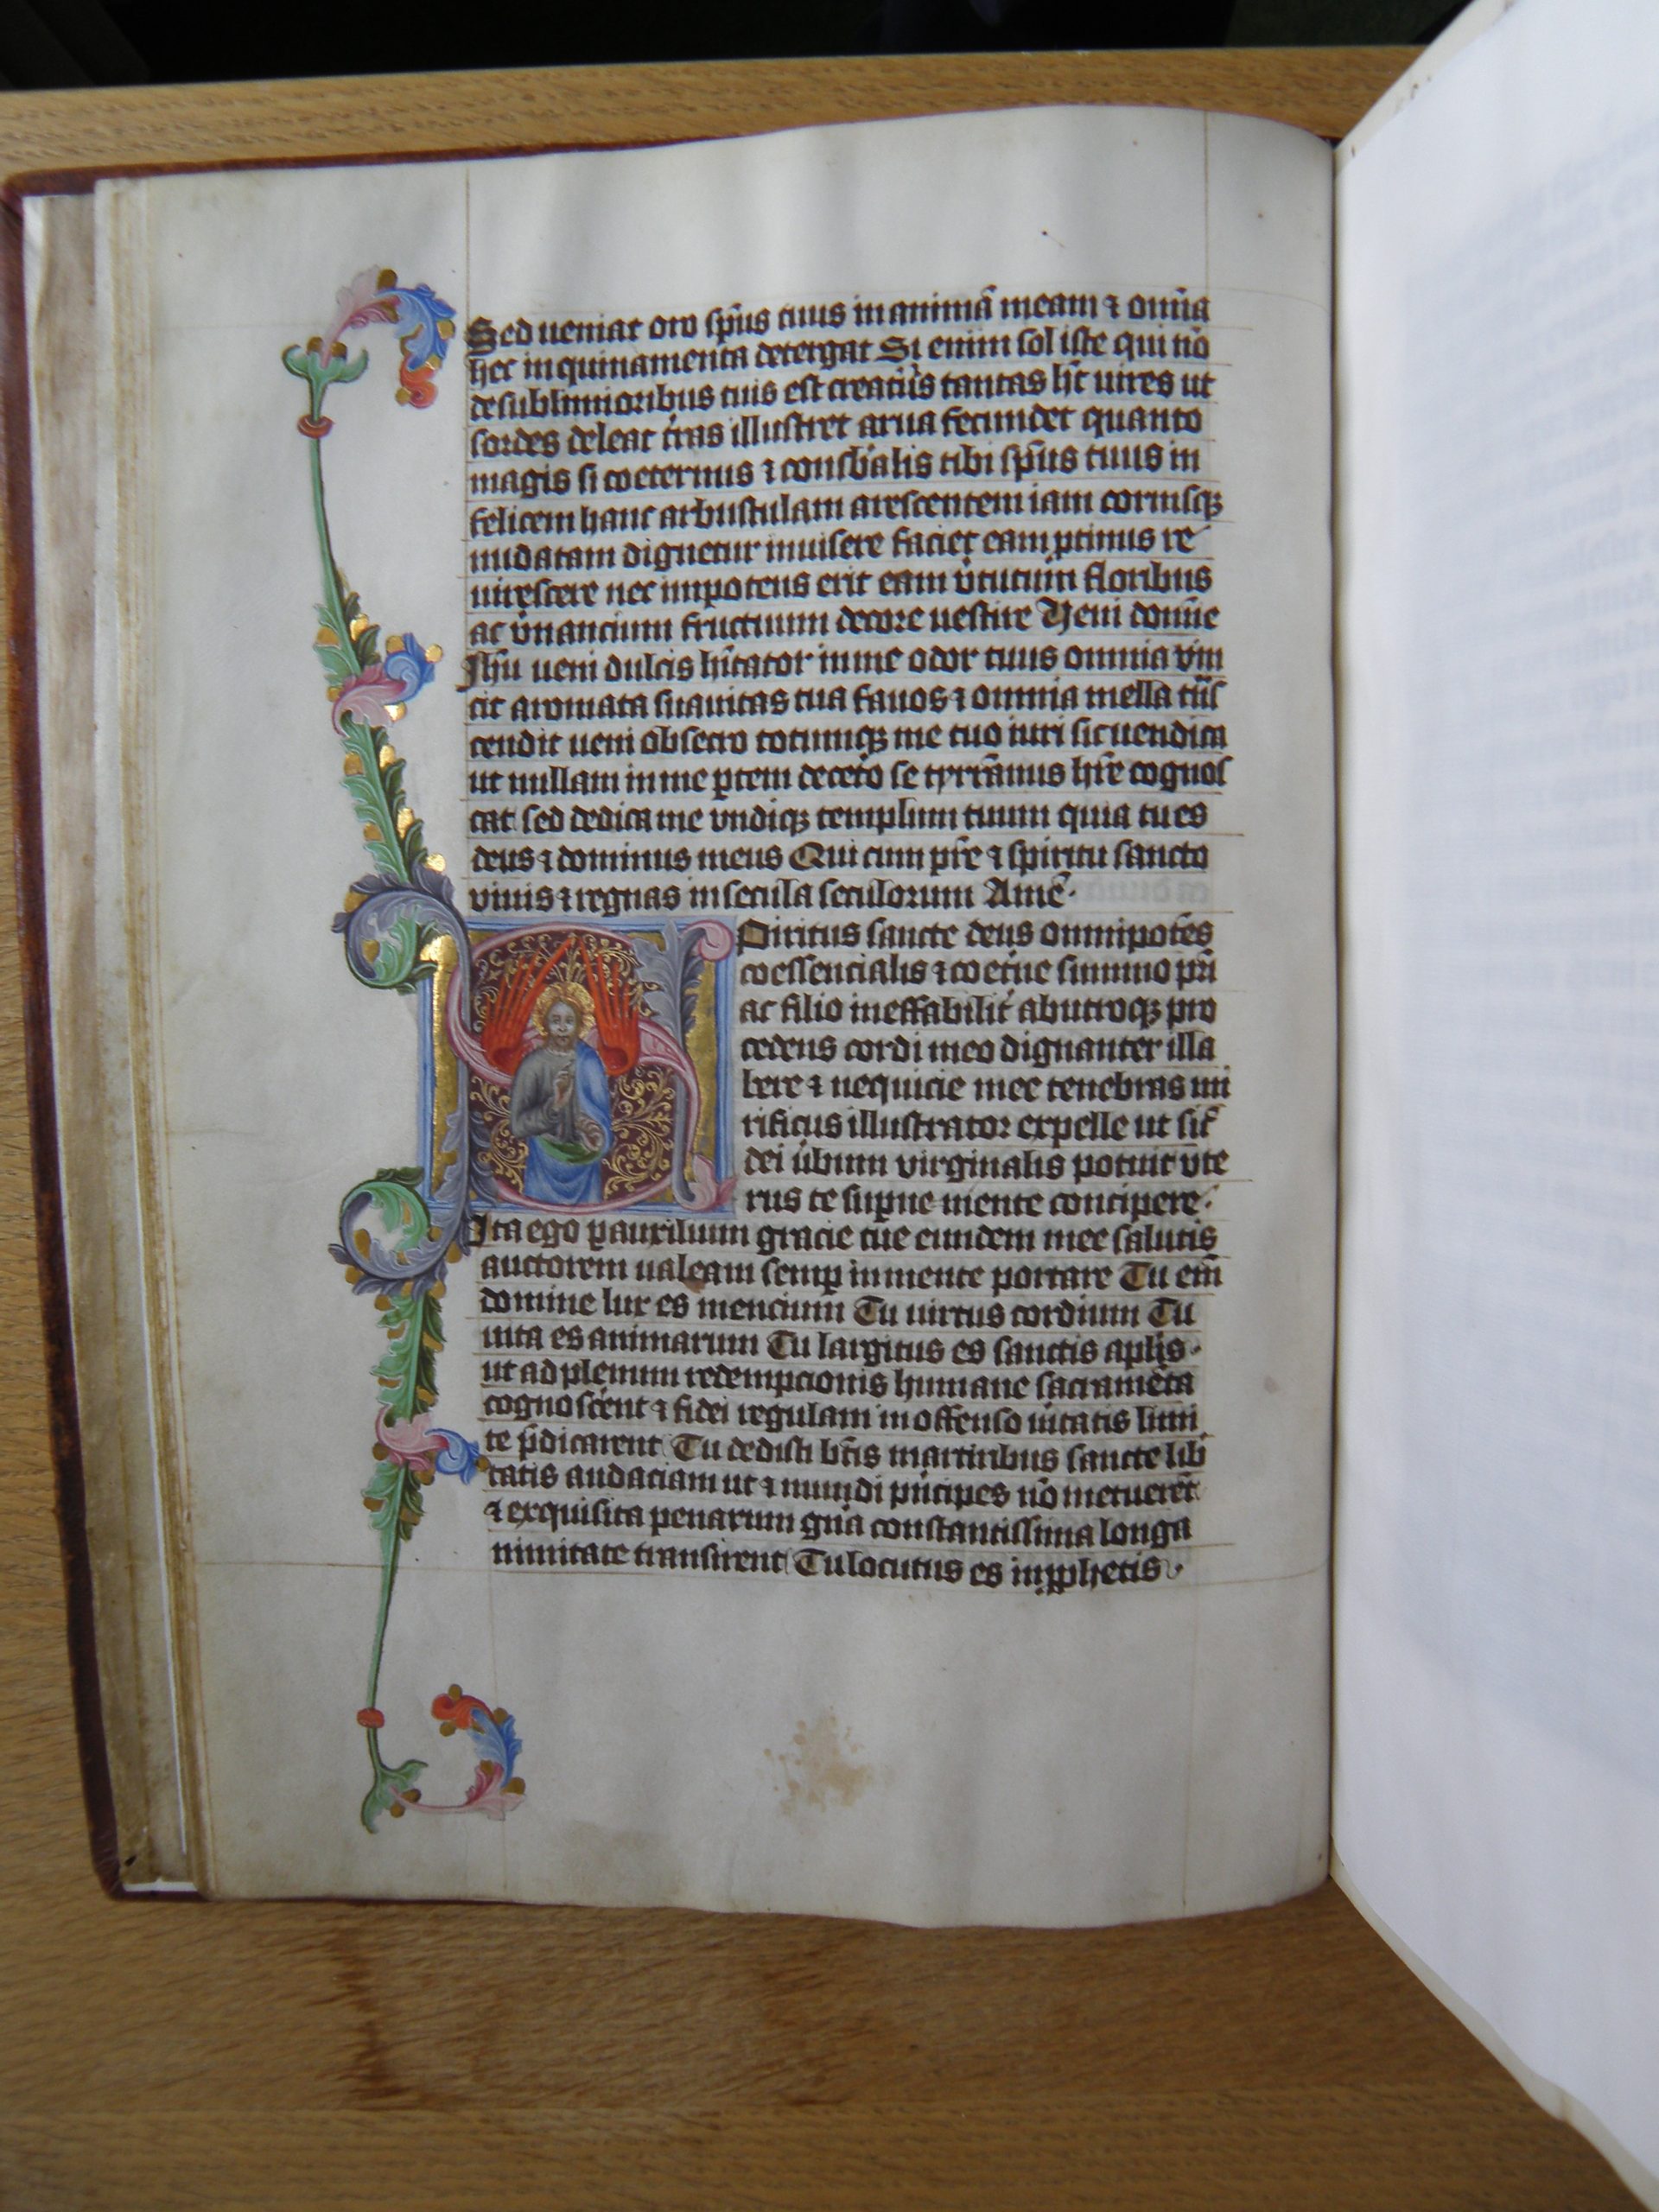 Sed ueniat oro sp̄us tuus in animā meam ⁊ om̄ia
hec inquinamenta detergat Si enim sol iste qui nō
de sublimioribus tuis est creatur̄is tantas ħt uires ut
sordes deleat t̄ras illustret arua fecundet quanto
magis si coeternus ⁊ consb̄alis tibi sp̄us tuus in
felicem hanc arbustulam arescentem iam cornisqꝫ
nudatam dignetur inuisere faciet eam ꝓtinus re
uirescere nec impotens erit eam v̄tutum floribus
ac v̄nancium fructuum decore uestire Veni domīe
Ihū ueni dulcis hītator in me odor tuus omnia vin
cit aromata suauitas tua fauos ⁊ omnia mella t̄ns
cendit ueni obsecro totumqꝫ me tuo iuri sic uendica
ut nullam in me ꝑtem decet̄o se tyrrānus hr̄e cognos
cat sed dedica me vndiqꝫ templum tuum quia tu es
deus ⁊ dominus meus Qui cum pr̄e ⁊ spiritu sancto
viuis ⁊ regnas in secula seculorum Amē·
Spiritus sancte deus omnipotēs
coessencialis ⁊ coet̄ne summo pr̄i
ac filio ineffabilit̄ ab utroqꝫ pro
cedens cordi meo dignanter illa
bere ⁊ nequicie mee tenebras mi
rificus illustrator expelle ut sic̄
dei v̄bum virginalis potuit vte
rus te suꝑne mente concipere·
Ita ego ꝑ auxilium gracie tue eundem mee salutis
auctorem ualeam semꝑ in mente portare Tu eīm
domine lux es mencium Tu uirtus cordium Tu
uita es animarum Tu largitus es sanctis apl̄is·
ut ad plenum redempcionis humane sacramēta
cognosc̄ent ⁊ fidei regulam in offenso ūitatis limi
te p̄dicarent Tu dedisti b̄tis martiribus sancte lib̄
tatis audaciam ut ⁊ mundi pͥncipes nō metuerēt
⁊ exquisita penarum gn̄a constantissima longa
nimitate transirent Tu locutus es in ꝓphetis·